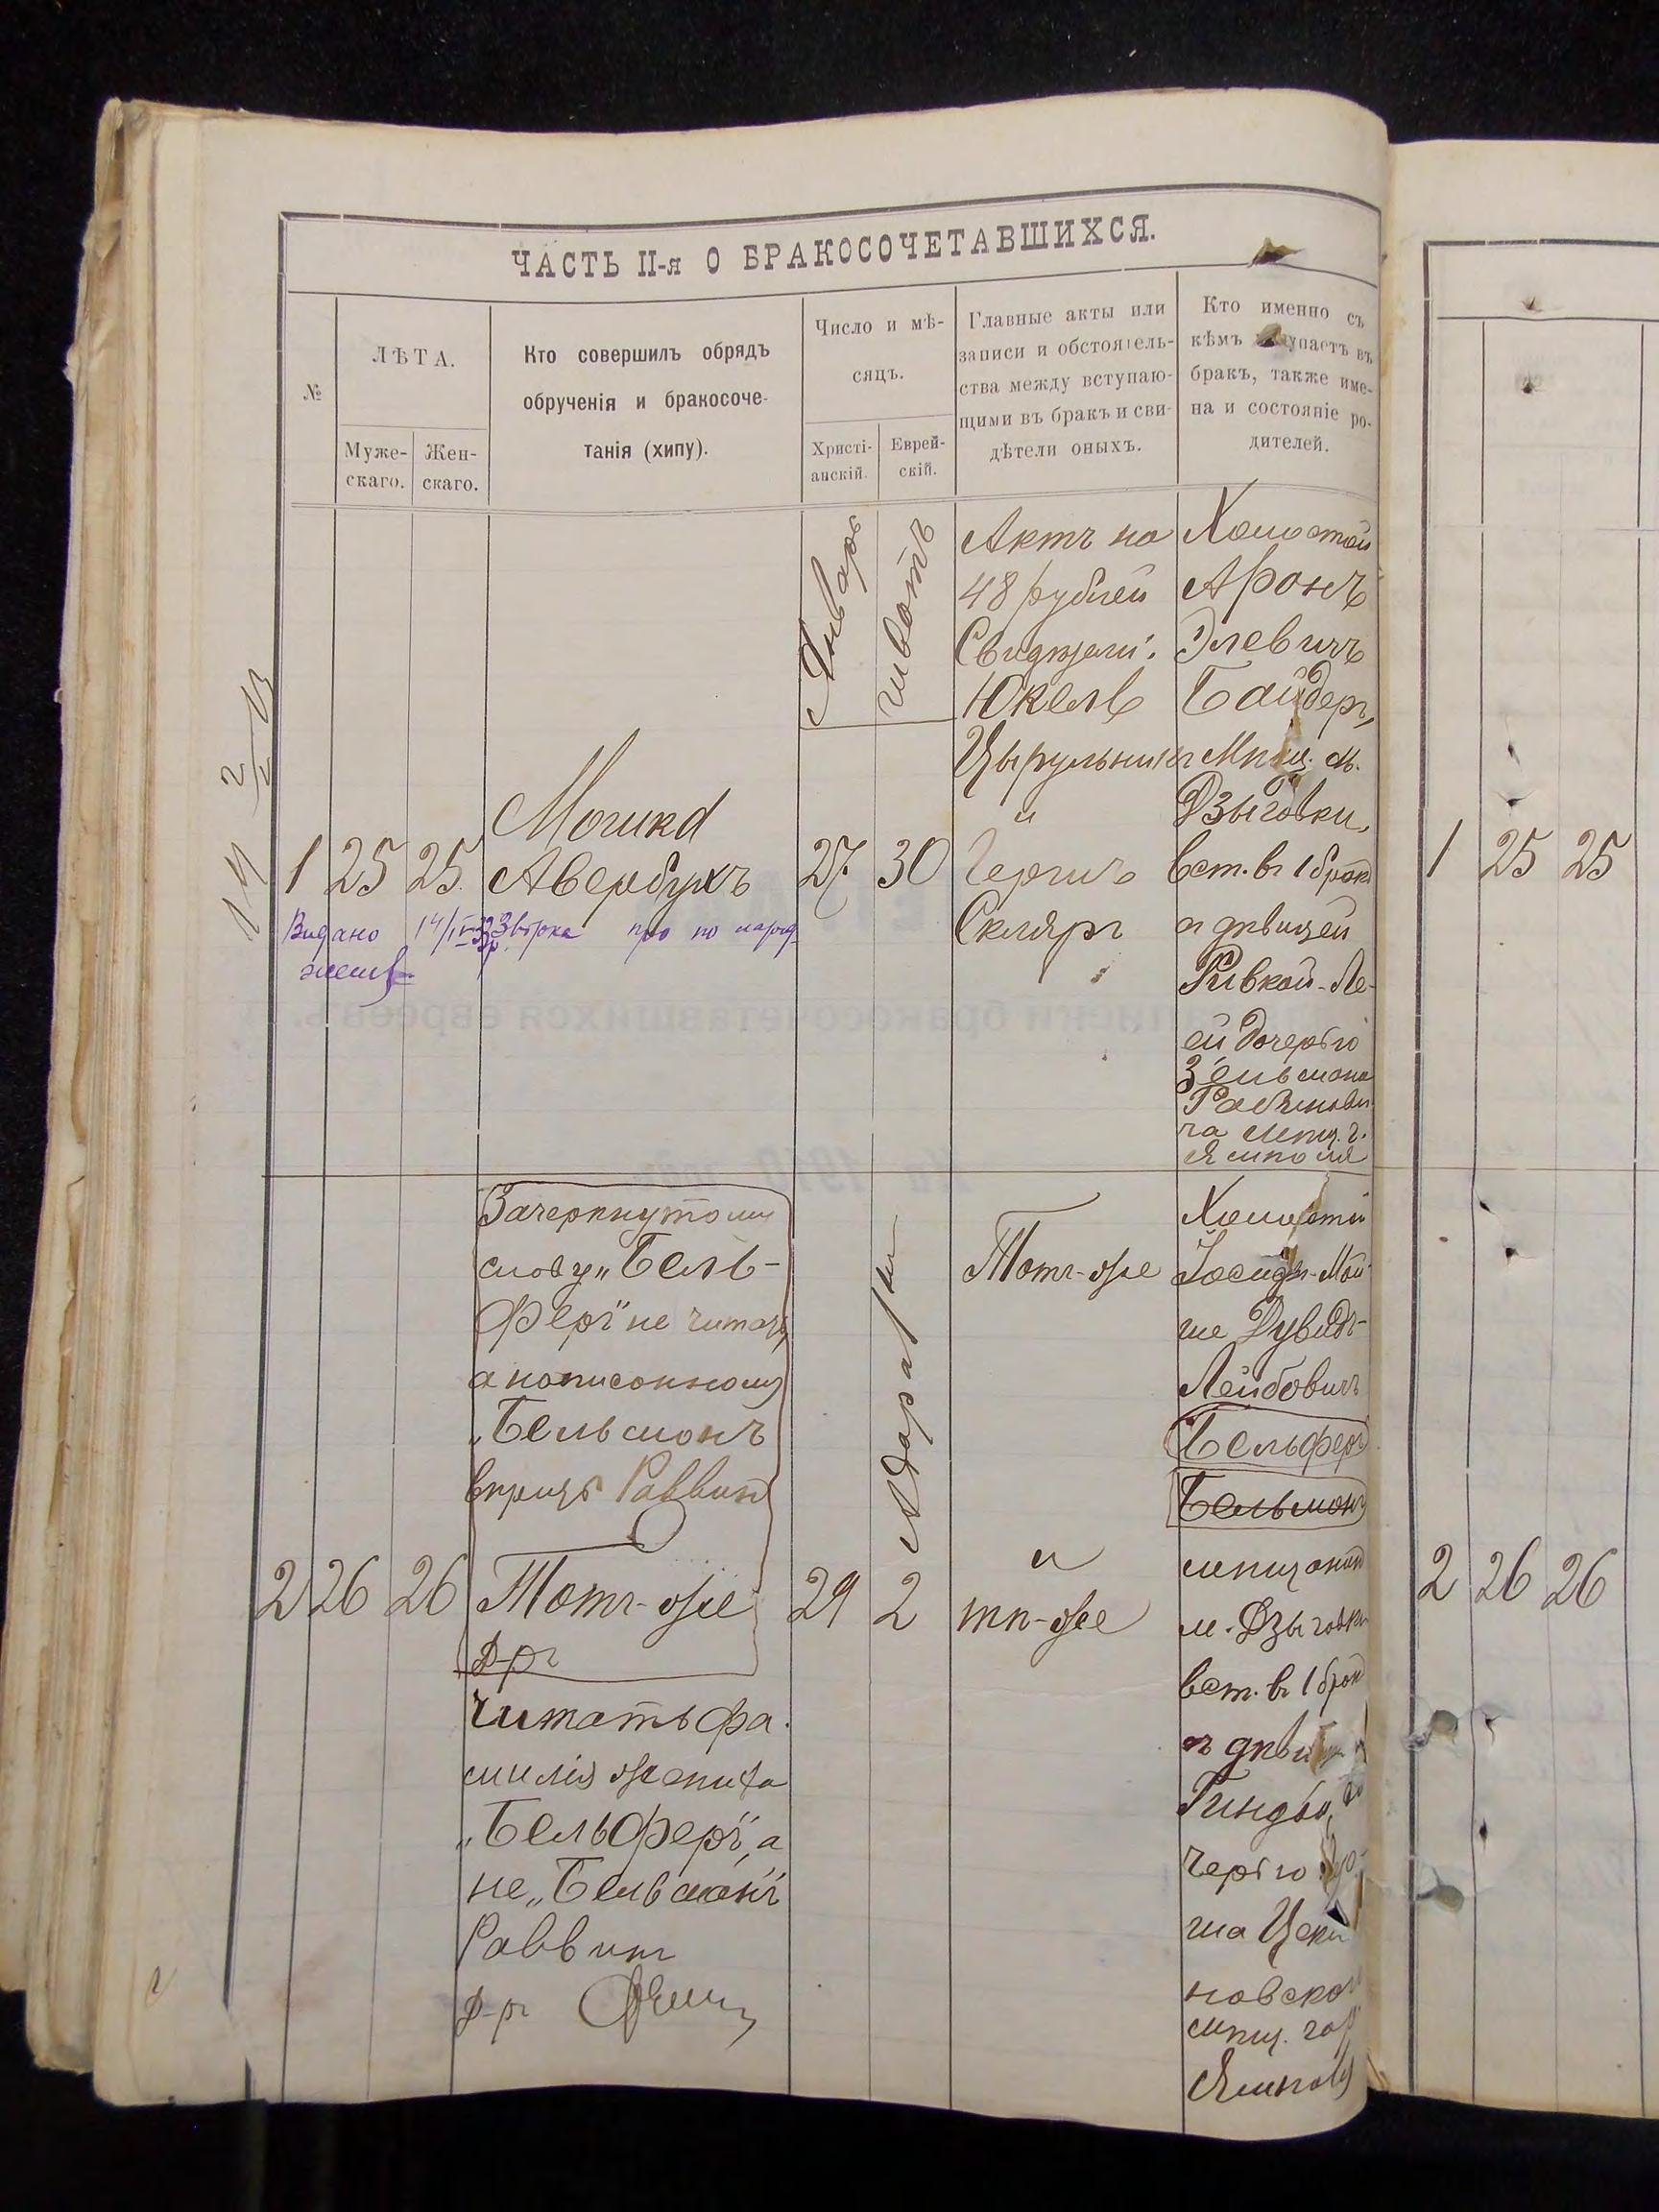 ЧАСТЬ II-я О БРАКОСОЧЕТАВШИХСЯ.
№
ЛѢТА.
Муже-
скаго.
Жен-
скаго.
Кто совершилъ обрядъ
обрученія и бракосоче-
танія (хипу).
Число и мѣ-
сяцъ.
Христі-
анскій.
Еврей-
скій.
Главные акты или
записи и обстоятель-
ства между вступаю-
щими въ бракъ и сви-
дѣтели оныхъ.
Кто именно съ
кѣмъ вступаетъ въ
бракъ, также име-
на и состояніе ро-
дителей.
1
25
25
Мошка
Авербухъ
Январь
27
Шватъ
30
Актъ на
48 рублей
Свидѣтели:
Юкель
Цырульникъ
и
Гершъ
Скляръ
Холостой
Аронъ
Элевичъ
Байдеръ,
Мѣщ. м.
Дзыговки,
вст. въ 1 бракъ
съ дѣвицей
Ривкой-Ле-
ей дочерью
Зельмана
Рабинови
ча мѣщ. г.
Ямполя
Видано 14/IV
2
26
26
Зачеркнутому
слову „Бель-
феръ" не читать,
а написанному
„Бельманъ
вѣрить Раввин
Тотъ-же
Д-ръ
читать фа-
милія жениха
„Бельферъ", а
не „Бельманъ"
Раввин
Д-ръ
29
Адара
2
Тотъ-же
и
тѣ-же
Холостой
Іосифъ-Мой-
ше Дувидъ-
Лейбовичъ
Бельферъ
Бельманъ
мѣщанин
м. Дзыговки
вст. въ 1 брак
съ дѣви
черью
ша Цеки
новскаго
мѣщ. гор
Ямполя
1
25
25
2
26
26